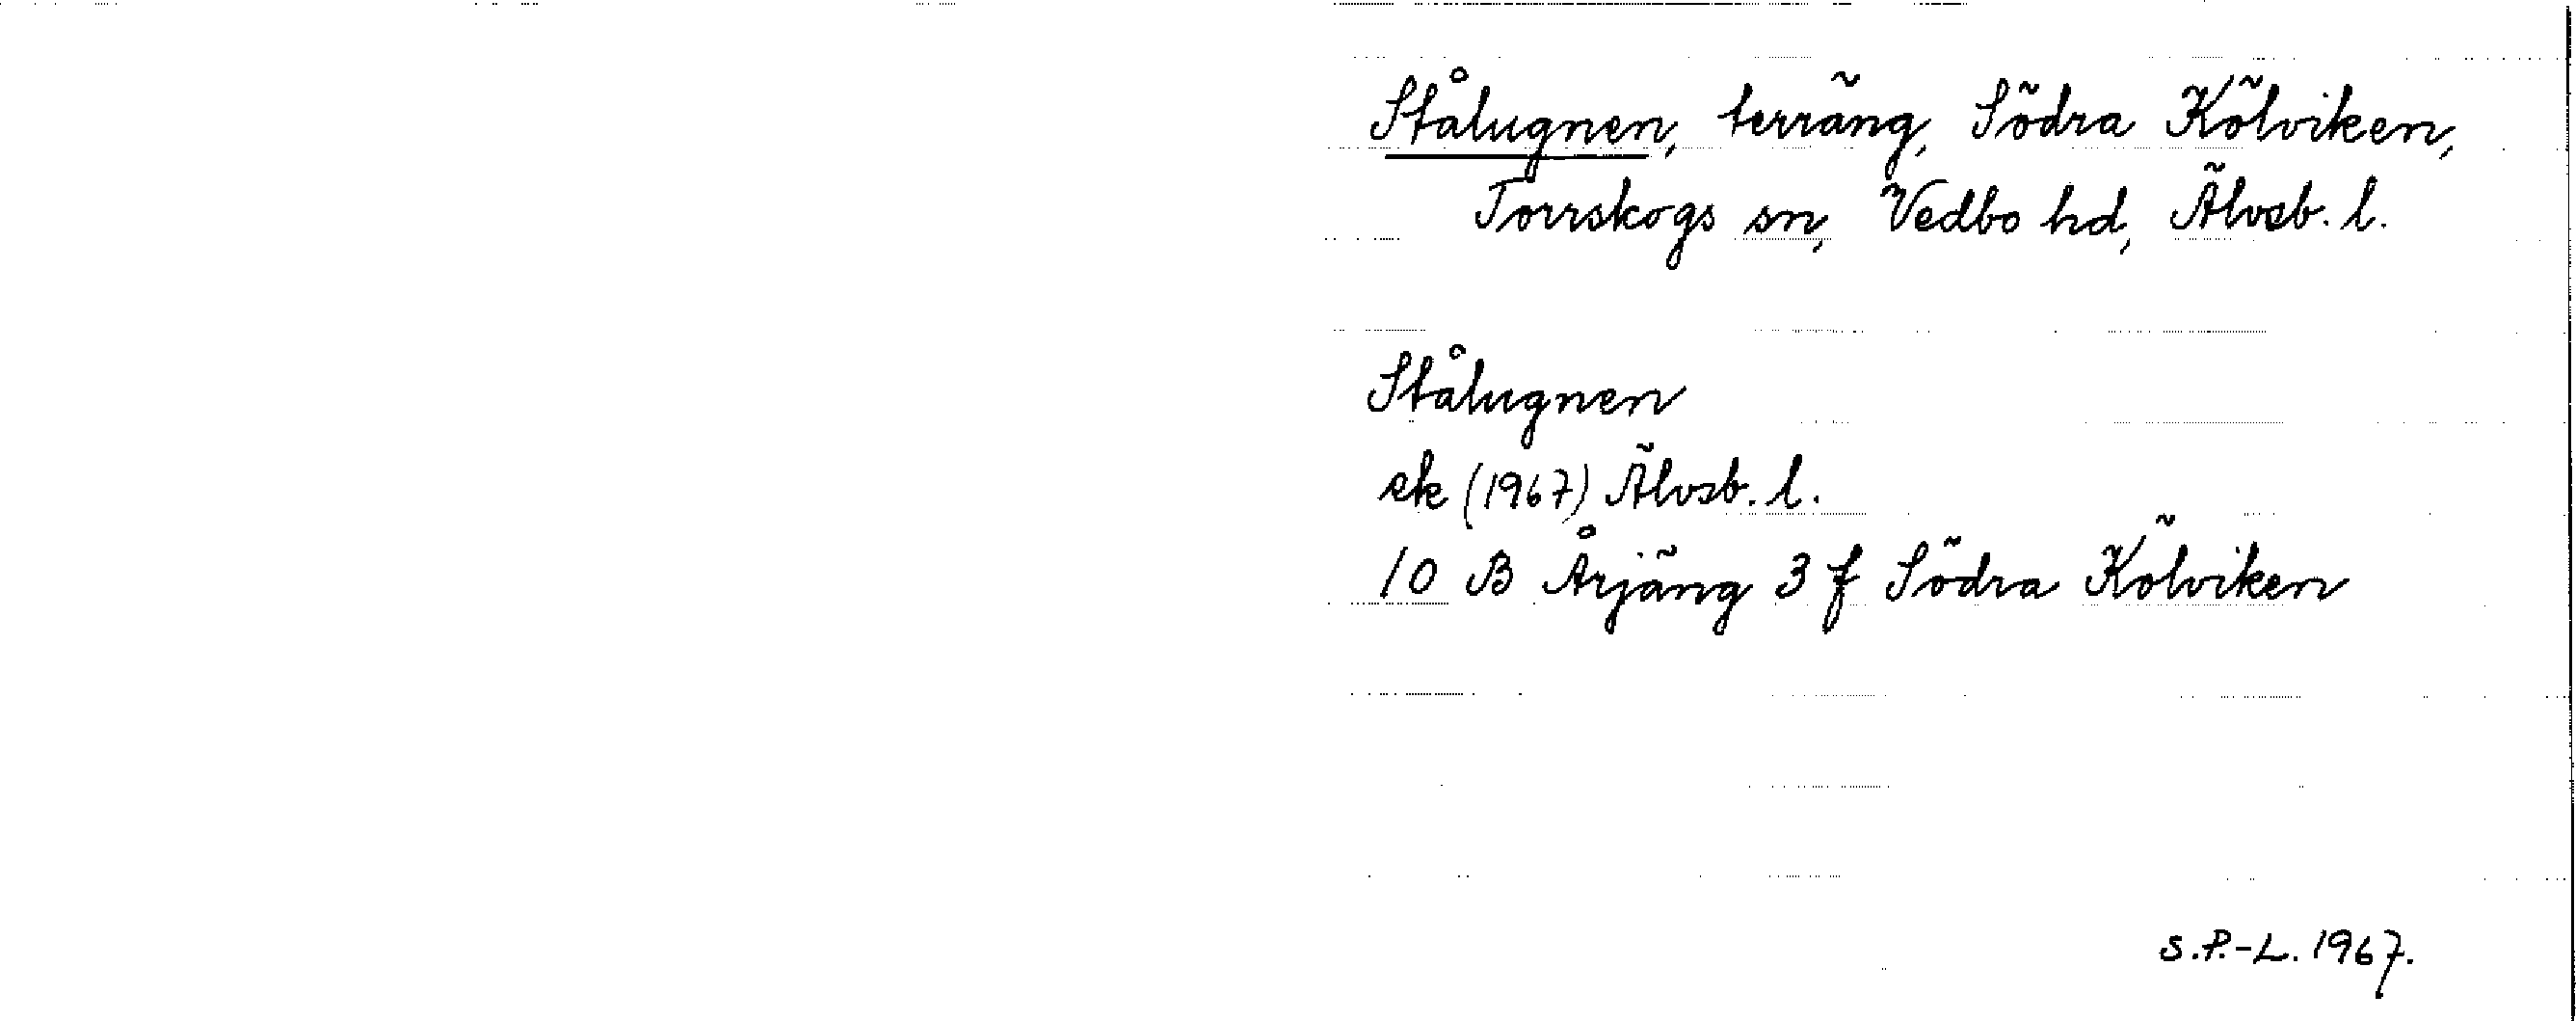 Stålugnen, terräng, Södra Kölviken,
Torrskogs sn, Vedbo hd, Älvsb. l.
Stålugnen
ek (1967) Älvsb. l.
10 B Årjäng 3 f Södra Kölviken
S.P.-L. 1967.